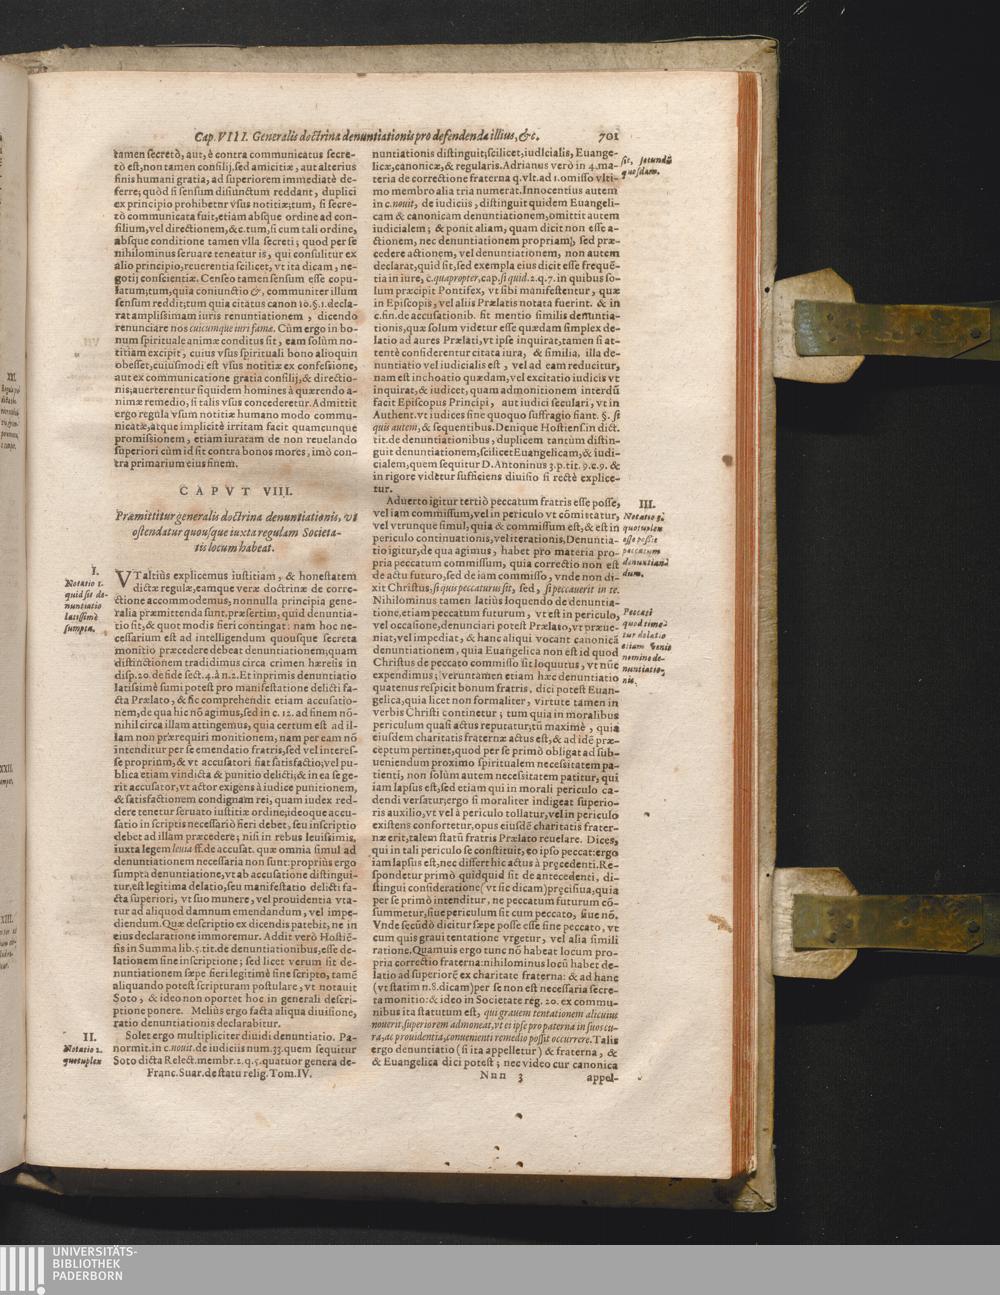 Cap. VIII. Generalis doctrina denuntiationis pro defendenda illius, &c. 701
tamen secretò, aut, è contra communicatus secre-
tò est, non tamen consilij, sed amicitiæ, aut alterius
finis humani gratia; ad superiorem immediatè de-
ferre; quòd si sensum disiunctum reddant, duplici
ex principio prohibetur vsus notitiæ; tum, si secre-
tò communicata fuit, etiam absque ordine ad con-
silium, vel directionem, & c. tum, si cum tali ordine,
absque conditione tamen vlla secreti; quod per se
nihilominus seruare teneatur is, qui consulitur ex
alio principio, reuerentia scilicet, vt ita dicam, ne-
gotij conscientiæ. Censeo tamen sensum esse copu-
latum; tum, quia coniunctio &, communiter illum
sensum reddit; tum quia citatus canon 10. §. 1. decla-
rat amplissimam iuris renuntiationem, dicendo
renunciare nos cuicumque iuri famæ. Cùm ergo in bo-
num spirituale animæ conditus sit, eam solùm no-
titiam excipit, cuius vsus spirituali bono alioquin
obesset, cuiusmodi est vsus notitiæ ex confessione,
aut ex communicatione gratia consilij, & directio-
nis; auerterentur siquidem homines à quærendo a-
nimæ remedio, si talis vsus concederetur. Admittit
ergo regula vsum notitiæ humano modo commu-
nicatæ, atque implicitè irritam facit quamcunque
promissionem, etiam iuratam de non reuelando
superiori cùm id sit contra bonos mores, imò con-
tra primarium eius finem.
CAPVT VIII.
Præmittitur generalis doctrina denuntiationis, vt
ostendatur quousque iuxta regulam Societa-
tis locum habeat.
I.
Notatio 1.
quid sit de-
nuntiatio
latissimè
sumpta.
VT altiùs explicemus iustitiam, & honestatem
dictæ regulæ, eamque veræ doctrinæ de corre-
ctione accommodemus, nonnulla principia gene-
ralia præmittenda sunt, præsertim, quid denuntia-
tio sit, & quot modis fieri contingat: nam hoc ne-
cessarium est ad intelligendum quousque secreta
monitio præcedere debeat denuntiationem; quam
distinctionem tradidimus circa crimen hæresis in
disp. 20. de fide sect. 4. à n. 2. Et inprimis denuntiatio
latissimè sumi potest pro manifestatione delicti fa-
cta Prælato, & sic comprehendit etiam accusatio-
nem, de qua hic nō agimus, sed in c. 12. ad finem nō-
nihil circa illam attingemus, quia certum est ad il-
lam non prærequiri monitionem, nam per eam nō
intenditur per se emendatio fratris, sed vel interes-
se proprium, & vt accusatori fiat satisfactio; vel pu-
blica etiam vindicta & punitio delicti; & in ea se ge-
rit accusator, vt actor exigens à iudice punitionem,
& satisfactionem condignam rei, quam iudex red-
dere tenetur seruato iustitiæ ordine; ideoque accu-
satio in scriptis necessariò fieri debet, seu inscriptio
debet ad illam præcedere; nisi in rebus leuissimis,
iuxta legem leuia ff. de accusat. quæ omnia simul ad
denuntiationem necessaria non sunt: propriùs ergo
sumpta denuntiatione, vt ab accusatione distingui-
tur, est legitima delatio, seu manifestatio delicti fa-
cta superiori, vt suo munere, vel prouidentia vta-
tur ad aliquod damnum emendandum, vel impe-
diendum. Quæ descriptio ex dicendis patebit, ne in
eius declaratione immoremur. Addit verò Hostiē-
sis in Summa lib. 5. tit. de denuntiationibus, esse de-
lationem sine inscriptione; sed licet verum sit de-
nuntiationem sæpe fieri legitimè sine scripto, tamē
aliquando potest scripturam postulare, vt notauit
Soto, & ideo non oportet hoc in generali descri-
ptione ponere. Melius ergo facta aliqua diuisione,
ratio denuntiationis declarabitur.
II.
Notatio 2.
quotuplex
Solet ergo multipliciter diuidi denuntiatio. Pa-
normit. in c. nouit. de iudiciis num. 33. quem sequitur
Soto dicta Relect. membr. 2. q. 5. quatuor genera de-
Franc. Suar. de statu relig. Tom. IV.
nuntiationis distinguit; scilicet, iudicialis, Euange-
licæ, canonicæ, & regularis. Adrianus verò in 4. ma-
teria de correctione fraterna q. vlt. ad 1. omisso vlti-
mo membro alia tria numerat. Innocentius autem
in c. nouit, de iudiciis, distinguit quidem Euangeli-
cam & canonicam denuntiationem, omittit autem
iudicialem; & ponit aliam, quam dicit non esse a-
ctionem, nec denuntiationem propriam, sed præ-
cedere actionem, vel denuntiationem, non autem
declarat, quid sit, sed exempla eius dicit esse frequē-
tia in iure, c. quapropter, cap. si quid. 2. q. 7. in quibus so-
lum præcipit Pontifex, vt sibi manifestentur, quæ
in Episcopis, vel aliis Prælatis notata fuerint. & in
c. fin. de accusationib. fit mentio similis denuntia-
tionis, quæ solum videtur esse quædam simplex de-
latio ad aures Prælati, vt ipse inquirat, tamen si at-
tentè considerentur citata iura, & similia, illa de-
nuntiatio vel iudicialis est, vel ad eam reducitur,
nam est inchoatio quædam, vel excitatio iudicis vt
inquirat, & iudicet, quam admonitionem interdū
facit Episcopus Principi, aut iudici seculari, vt in
Authent. vt iudices sine quoquo suffragio fiant. §. si
quis autem, & sequentibus. Denique Hostiens. in dict.
tit. de denuntiationibus, duplicem tantùm distin-
guit denuntiationem, scilicet Euangelicam, & iudi-
cialem, quem sequitur D. Antoninus 3. p. tit. 9. c. 9. &
in rigore videtur sufficiens diuisio si rectè explice-
tur.
sit, secundū
quosdam.
Aduerto igitur tertiò peccatum fratris esse posse,
vel iam commissum, vel in periculo vt cōmittatur,
vel vtrunque simul, quia & commissum est, & est in
periculo continuationis, vel iterationis, Denuntia-
tio igitur, de qua agimus, habet pro materia pro-
pria peccatum commissum, quia correctio non est
de actu futuro, sed de iam commisso, vnde non di-
xit Christus, si quis peccaturus sit, sed, si peccauerit in te.
Nihilominus tamen latiùs loquendo de denuntia-
tione, etiam peccatum futurum, vt est in periculo,
vel occasione, denunciari potest Prælato, vt præue-
niat, vel impediat, & hanc aliqui vocant canonicā
denuntiationem, quia Euangelica non est id quod
Christus de peccato commisso sit loquutus, vt nūc
expendimus; veruntamen etiam hæc denuntiatio
quatenus respicit bonum fratris, dici potest Euan-
gelica, quia licet non formaliter, virtute tamen in
verbis Christi continetur; tum quia in moralibus
periculum quasi actus reputatur; tū maximè, quia
eiusdem charitatis fraternæ actus est, & ad idē præ-
ceptum pertinet, quod per se primò obligat ad sub-
ueniendum proximo spiritualem necessitatem pa-
tienti, non solùm autem necessitatem patitur, qui
iam lapsus est, sed etiam qui in morali periculo ca-
dendi versatur; ergo si moraliter indigeat superio-
ris auxilio, vt vel à periculo tollatur, vel in periculo
existens confortetur, opus eiusdē charitatis frater-
næ erit, talem statū fratris Prælato reuelare. Dices,
qui in tali periculo se constituit, eo ipso peccat: ergo
iam lapsus est, nec differt hic actus à præcedenti. Re-
spondetur primò quidquid sit de antecedenti, di-
stingui consideratione (vt sic dicam) præcisiua, quia
per se primò intenditur, ne peccatum futurum cō-
summetur, siue periculum sit cum peccato, siue nō.
Vnde secūdò dicitur sæpe posse esse sine peccato, vt
cum quis graui tentatione vrgetur, vel alia simili
ratione. Quamuis ergo tunc nō habeat locum pro-
pria correctio fraterna: nihilominus locū habet de-
latio ad superiorē ex charitate fraterna: & ad hanc
(vt statim n. 8. dicam) per se non est necessaria secre-
ta monitio: & ideo in Societate reg. 20. ex commu-
nibus ita statutum est, qui grauem tentationem alicuius
nouerit, superiorem admoneat, vt et ipse pro paterna in suos cu-
ra, ac prouidentia, conuenienti remedio possit occurrere. Talis
ergo denuntiatio (si ita appelletur) & fraterna, &
& Euangelica dici potest; nec video cur canonica
III.
Notatio 3.
quotuplex
esse possit
peccatum
denuntian-
dum.
Peccati
quod time-
tur delatio
etiam venit
nomine de-
nuntiatio-
nis.
Nnn 3 appel-
XXI.
XXII.
XIII.
UNIVERSITÄTS-
BIBLIOTHEK
PADERBORN